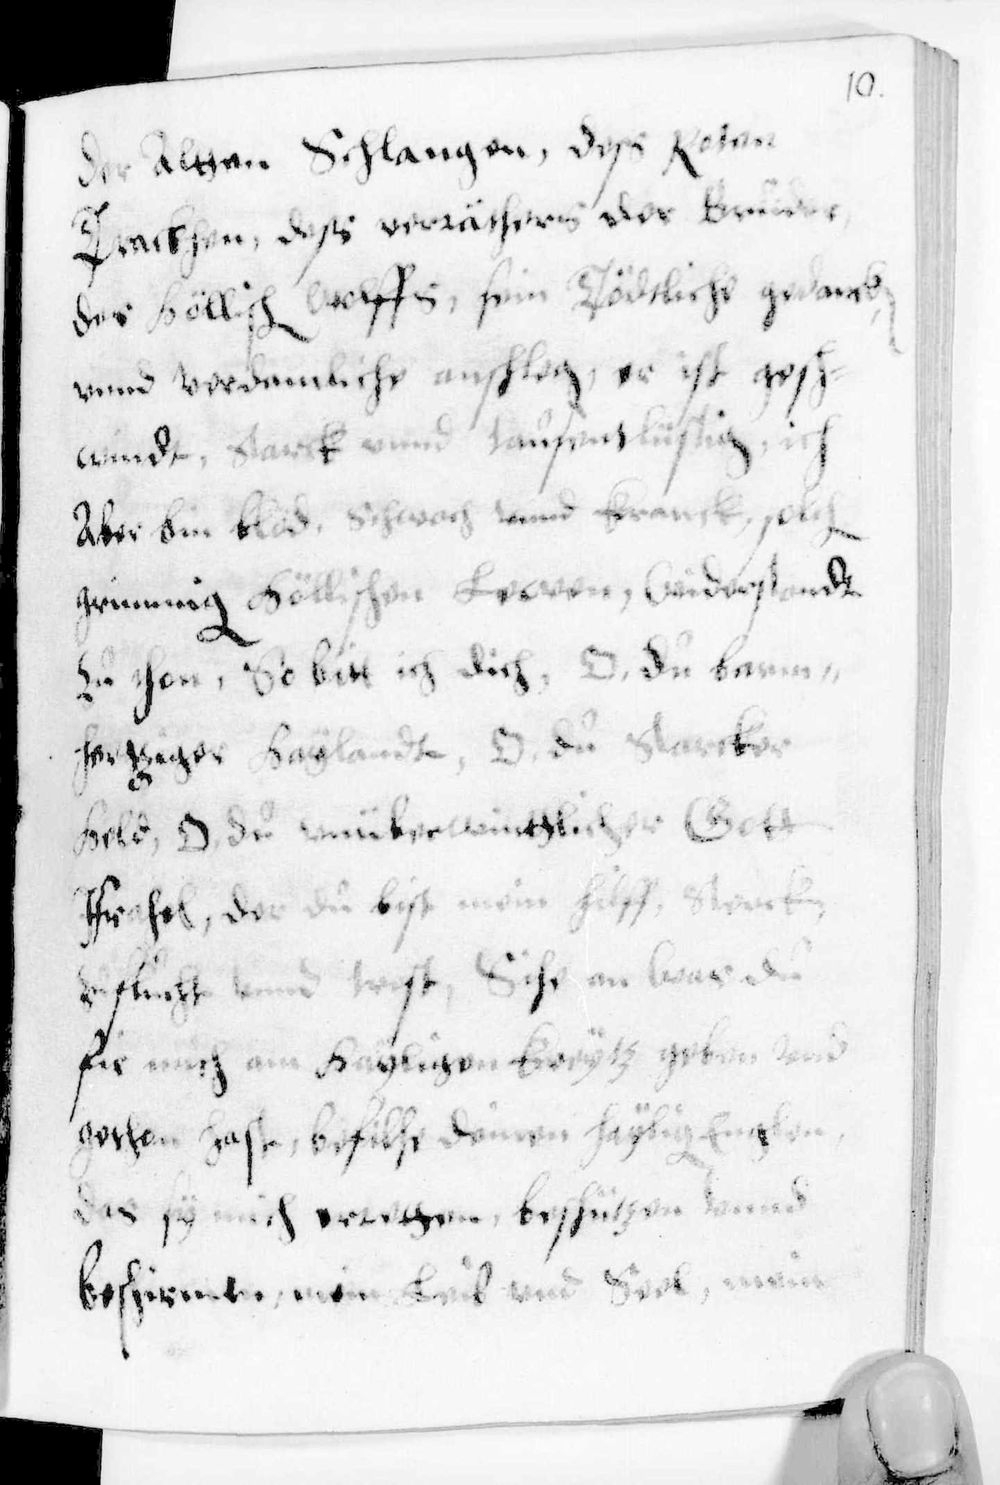 10.
der Altten Schlangen, dess Roten
Trackhen, dess verräthers der Brüder,
des Höllisch Wolffs, sein Tödtliche gedanckh,
vnnd verdamliche anschleg, er ist gesch-
windt, starck vnnd tausentlüstig, ich
Aber bin blöd, schwach vnnd kranck, solch
grimmig Höllischen Lewen, Widerstandt
zu thon, So bitt ich dich, O, du barm-
hertziger Haylandt, O, du starcker
Held, O, du vnüberwintlicher Gott
Israhel, der du bist mein hilff, sterckh,
zuflucht vnnd trost, Sihe an was du
für mich am Hayligen kreytz geben vnd
gethon hast, befilhe deinen haylig Englen,
das sy mich erretten, beschützen vnnd
beschirmen, mein Leib vnd Seel, mein